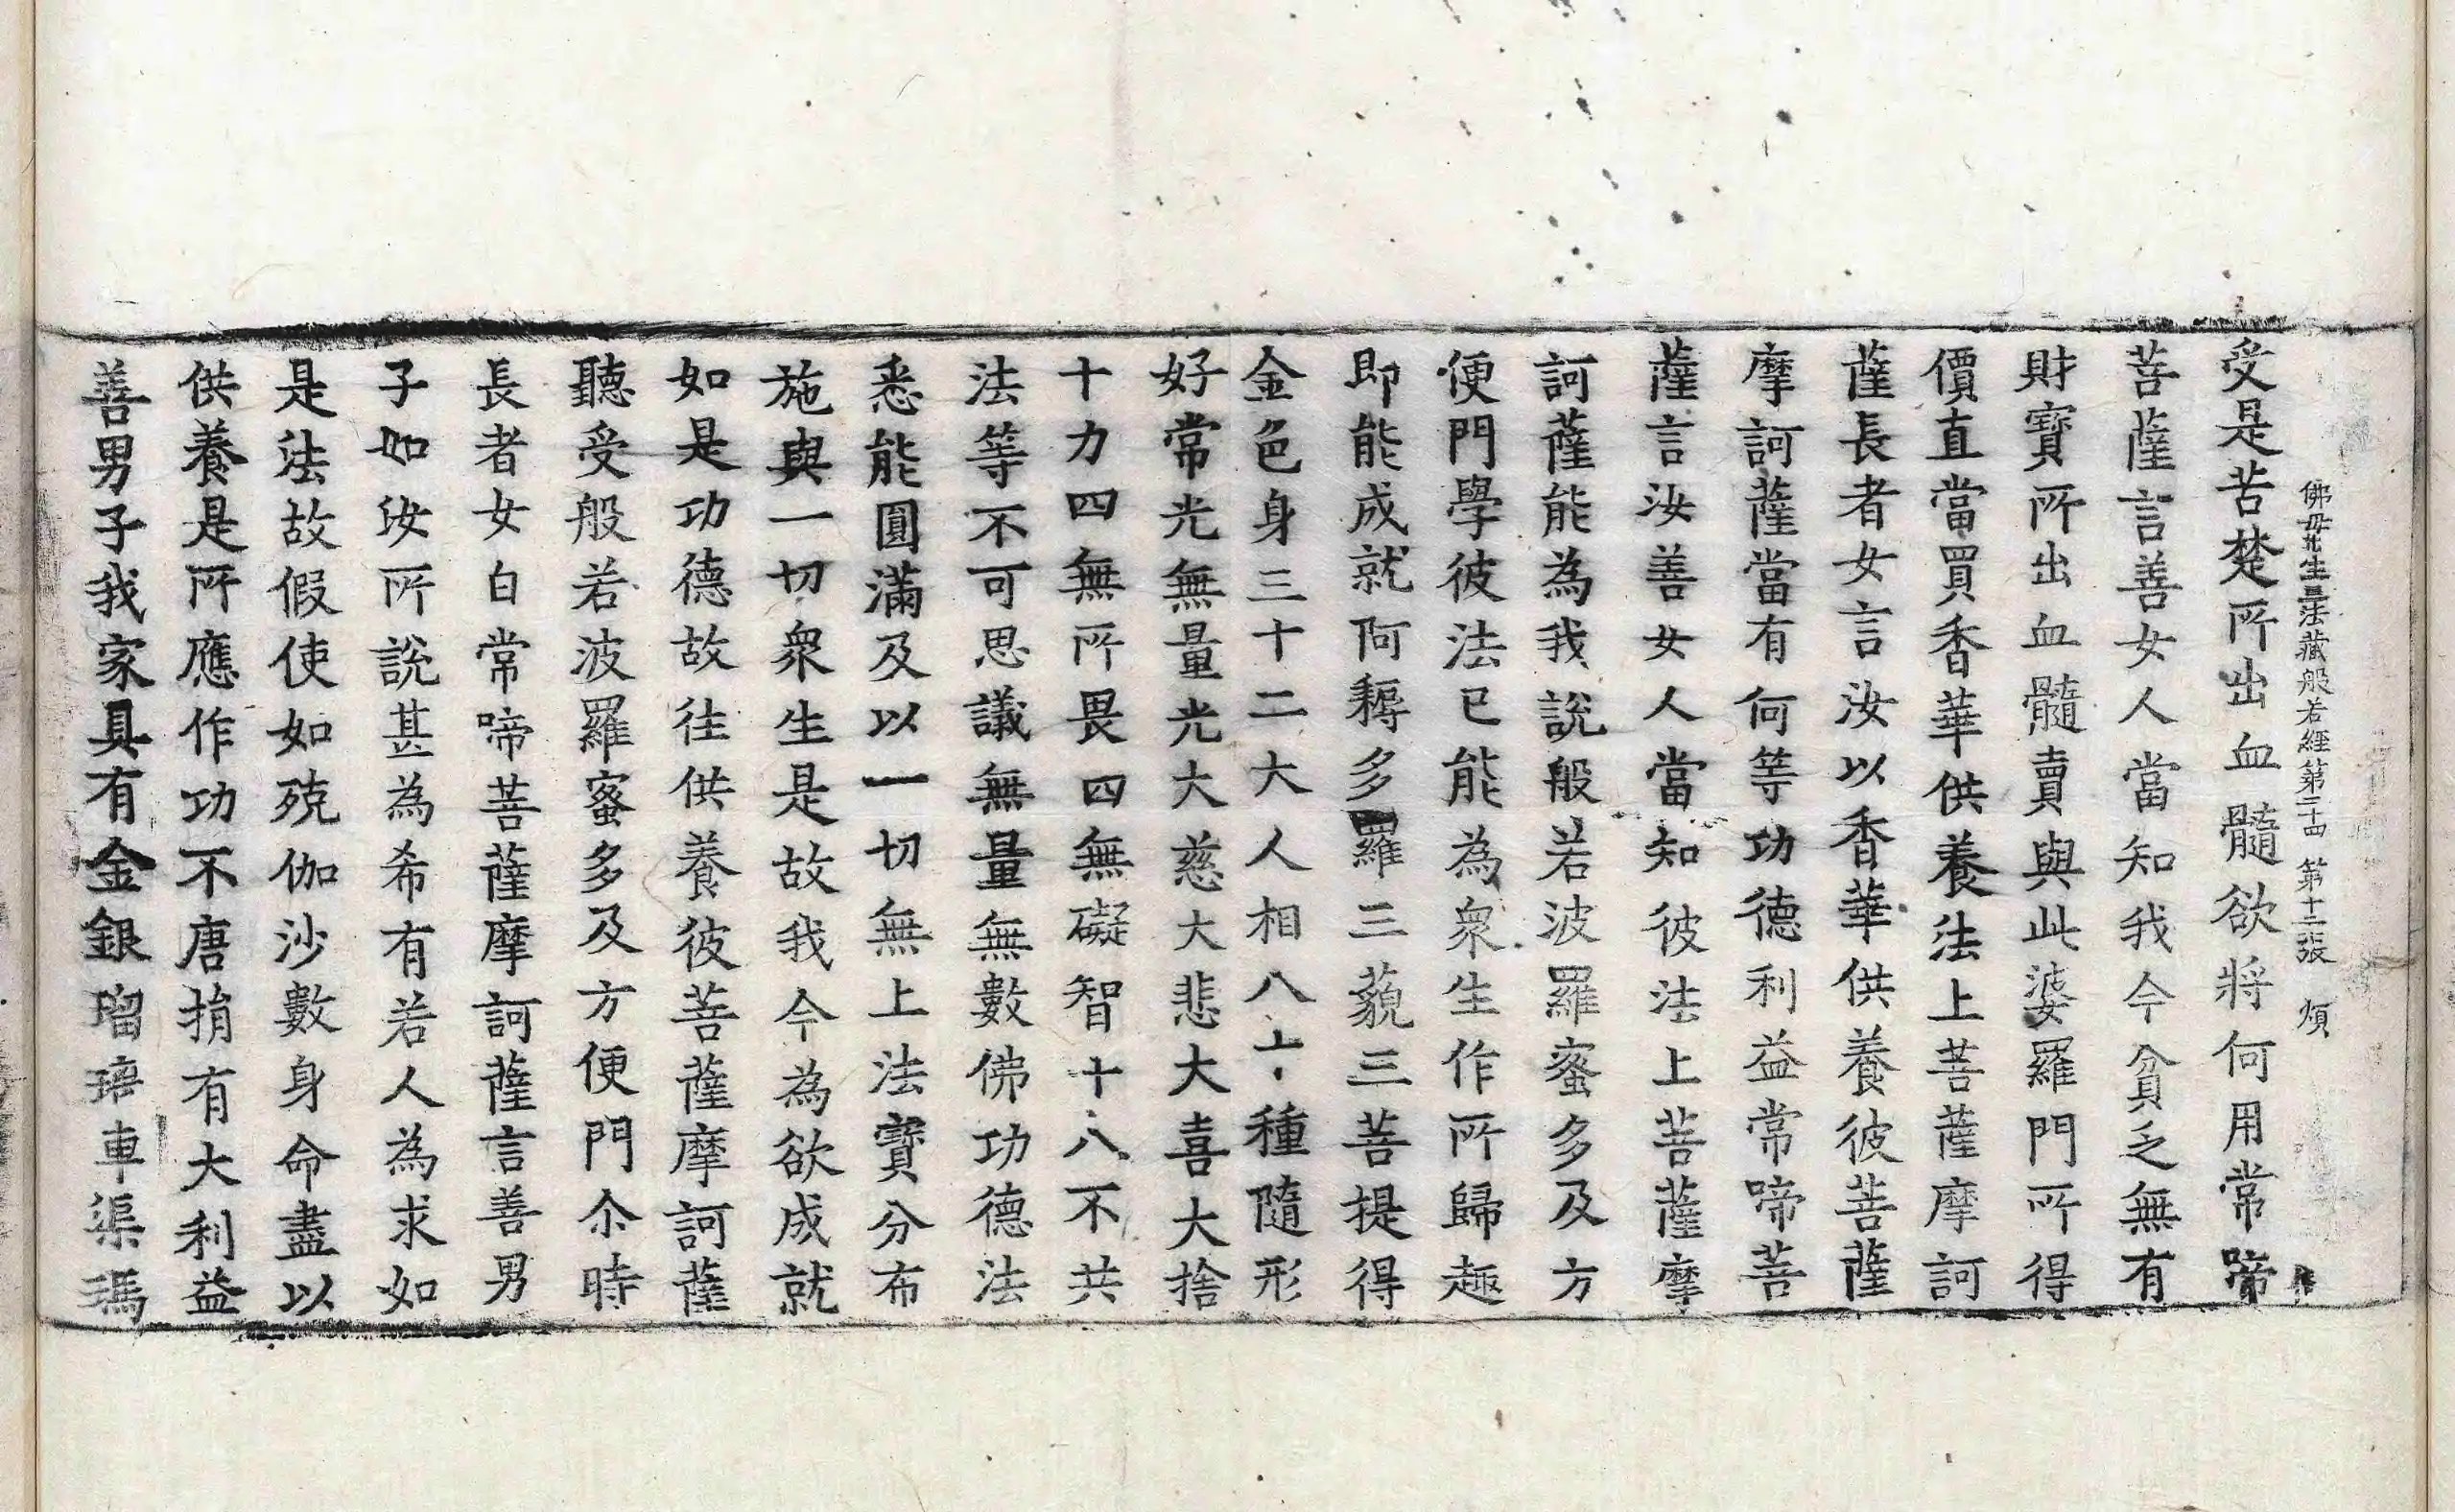 佛母出生三法藏般若經第二十四 第十二張 煩
受是苦楚所出血髓欲將何用常啼
菩薩言善女人當知我今貧乏無有
財寶所出血髓賣與此婆羅門所得
價直當買香華供養法上菩薩摩訶
薩長者女言汝以香華供養彼菩薩
摩訶薩當有何等功德利益常啼菩
薩言汝善女人當知彼法上菩薩摩
訶薩能為我說般若波羅蜜多及方
便門學彼法已能為衆生作所歸趣
即能成就阿耨多羅三藐三菩提得
金色身三十二大人相八十種隨形
好常光無量光大慈大悲大喜大捨
十力四無所畏四無礙智十八不共
法等不可思議無量無數佛功德法
悉能圓滿及以一切無上法寶分布
施與一切衆生是故我今為欲成就
如是功德故往供養彼菩薩摩訶薩
聽受般若波羅蜜多及方便門尒時
長者女白常啼菩薩摩訶薩言善男
子如汝所說甚為希有若人為求如
是法故假使如殑伽沙數身命盡以
供養是所應作功不唐捐有大利益
善男子我家具有金銀瑠璃車渠瑪